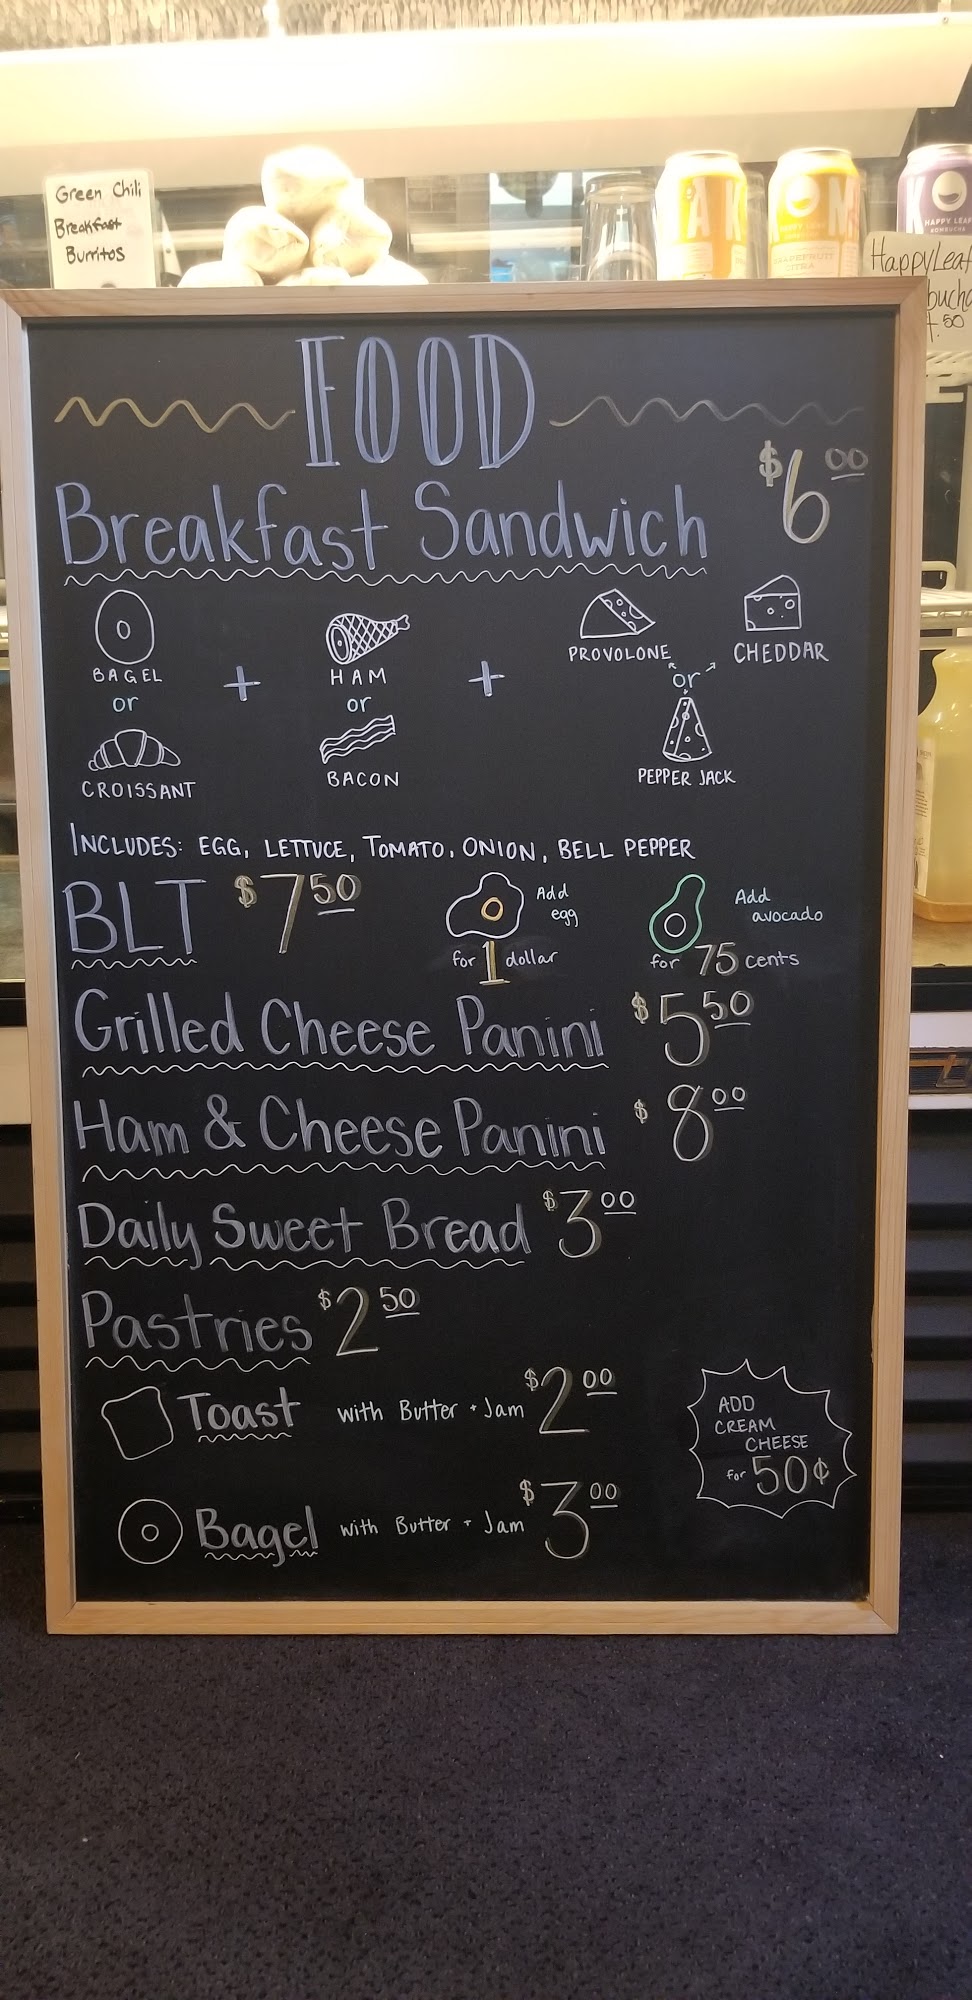 Green Chili
Breakfast
Burritos
AK
OM
K O
HAPPY LEAF
KOMBUCHA
GRAPEFRUIT
CITRA
HappyLeaf
.50
FOOD
Breakfast Sandwich $6 00
BAGEL
or
CROISSANT
+
HAM
or
BACON
+
PROVOLONE
CHEDDAR
or
PEPPER JACK
INCLUDES: EGG, LETTUCE, TOMATO, ONION, BELL PEPPER
BLT $7 50
Add
egg
for 1 dollar
Add
avocado
for 75 cents
Grilled Cheese Panini $5 50
Ham & Cheese Panini $8 00
Daily Sweet Bread $3 00
Pastries $2 50
Toast with Butter + Jam $2 00
Bagel with Butter + Jam $3 00
ADD
CREAM
CHEESE
for 50¢